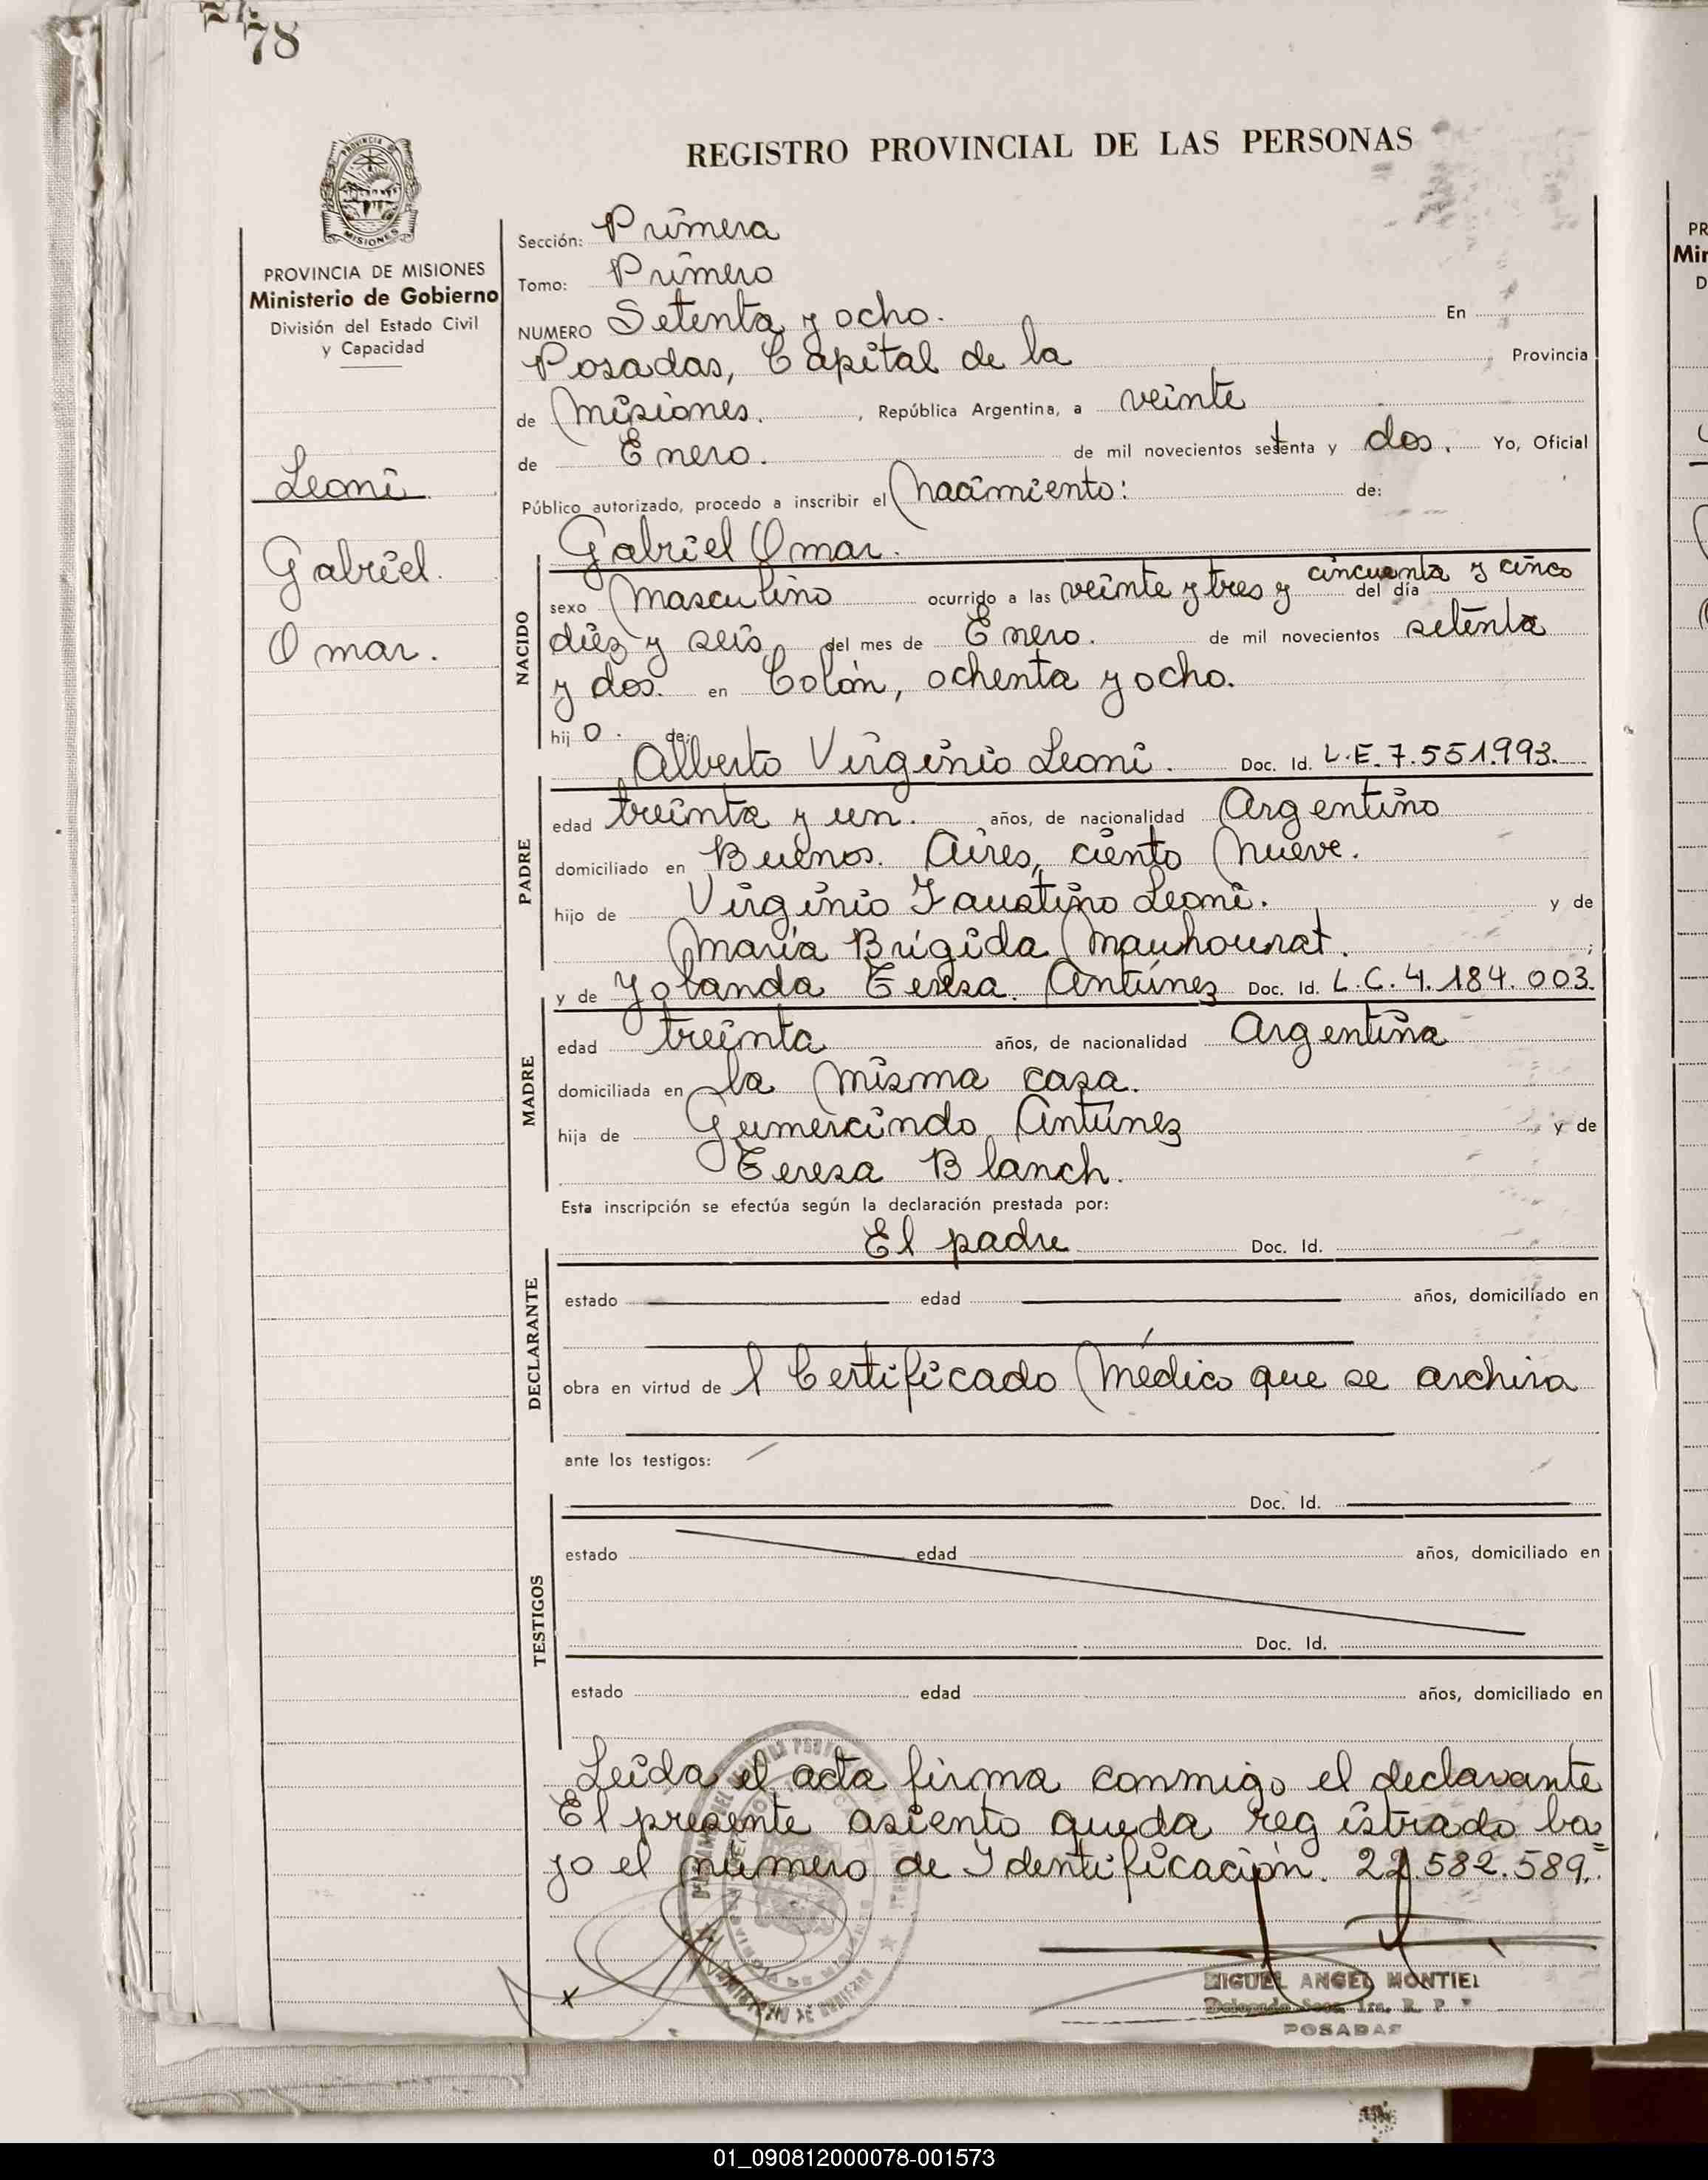 78
REGISTRO PROVINCIAL DE LAS PERSONAS
PROVINCIA DE MISIONES
MISIONES
PROVINCIA DE MISIONES
Ministerio de Gobierno
División del Estado Civil
y Capacidad
Leoni
Gabriel.
Omar.
Sección: Primera
Tomo: Primero
NUMERO Setenta y ocho. En
Posadas, Capital de la Provincia
de Misiones. , República Argentina, a veinte
de Enero. de mil novecientos setenta y dos. Yo, Oficial
Público autorizado, procedo a inscribir el Nacimiento: de:
Gabriel Omar.
NACIDO
sexo Masculino ocurrido a las veinte y tres y cincuenta y cinco del día
diez y seis del mes de Enero. de mil novecientos setenta
y dos. en Colón, ochenta y ocho.
hij o. de:
Alberto Virginio Leoni. Doc. Id. L.E. 7.551.993.
PADRE
edad treinta y un. años, de nacionalidad Argentino
domiciliado en Buenos. Aires, ciento nueve.
hijo de Virginio Faustino Leoni. y de
María Brígida Mauhourat. ;
y de Yolanda Teresa. Antúnez Doc. Id. L.C. 4.184.003.
MADRE
edad treinta años, de nacionalidad Argentina
domiciliada en la misma casa.
hija de Gumercindo Antúnez y de
Teresa Blanch.
Esta inscripción se efectúa según la declaración prestada por:
El padre Doc. Id.
DECLARANTE
estado edad años, domiciliado en
obra en virtud de l Certificado Médico que se archiva
ante los testigos:
Doc. Id.
TESTIGOS
estado edad años, domiciliado en
Doc. Id.
estado edad años, domiciliado en
Leída el acta firma conmigo el declarante
El presente asiento queda registrado ba=
jo el número de Identificación. 22.582.589.
MIGUEL ANGEL MONTIEL
POSADAS
01_090812000078-001573